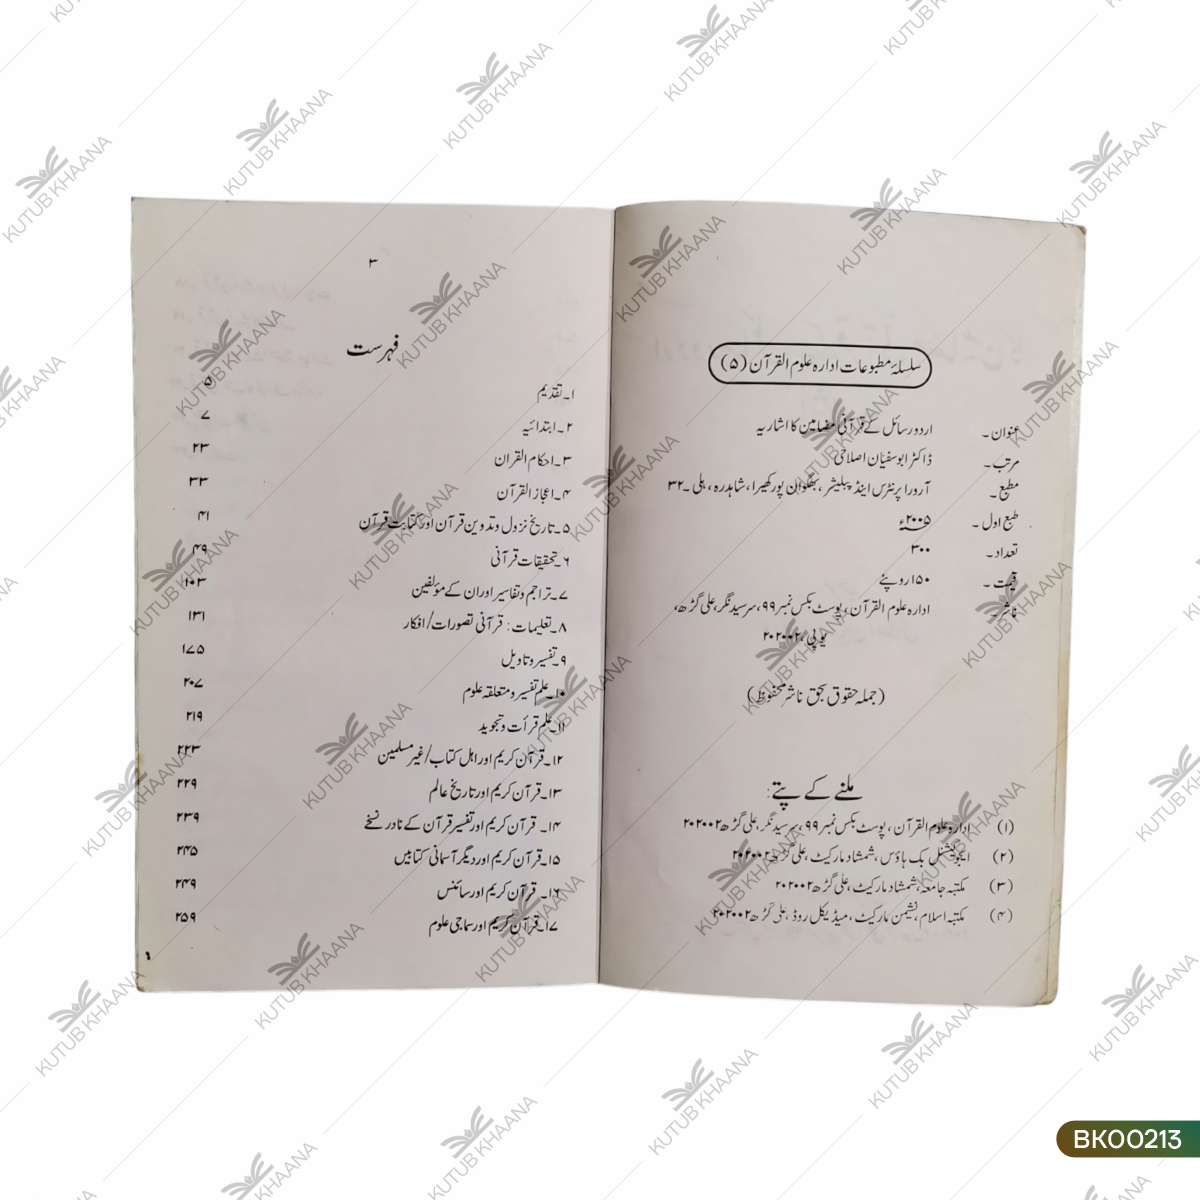 سلسلۂ مطبوعات ادارہ علوم القرآن (۵)
عنوان۔ اردو رسائل کے قرآنی مضامین کا اشاریہ
مرتب۔ ڈاکٹر ابوسفیان اصلاحی
مطبع۔ آرورا پرنٹرس اینڈ پبلیشر، بھگوان پور کھیرا، شاہدرہ، دہلی۔۳۲
طبع اول۔ ۲۰۰۵ء
تعداد۔ ۳۰۰
قیمت۔ ۱۵۰ روپئے
ناشر۔ ادارہ علوم القرآن، پوسٹ بکس نمبر ۹۹، سرسید نگر، علی گڑھ،
یوپی، ۲۰۲۰۰۲
(جملہ حقوق بحق ناشر محفوظ)
ملنے کے پتے:
(۱) ادارہ علوم القرآن، پوسٹ بکس نمبر ۹۹، سرسید نگر، علی گڑھ ۲۰۲۰۰۲
(۲) ایجوکیشنل بک ہاؤس، شمشاد مارکیٹ، علی گڑھ ۲۰۲۰۰۲
(۳) مکتبہ جامعہ، شمشاد مارکیٹ، علی گڑھ ۲۰۲۰۰۲
(۴) مکتبہ اسلام، نشیمن مارکیٹ، میڈیکل روڈ، علی گڑھ ۲۰۲۰۰۲
۳
فہرست
۱۔ تقدیم ۵
۲۔ ابتدائیہ ۷
۳۔ احکام القران ۲۳
۴۔ اعجاز القرآن ۳۳
۵۔ تاریخ نزول وتدوین قرآن اور کتابت قرآن ۴۱
۶۔ تحقیقات قرآنی ۴۹
۷۔ تراجم وتفاسیر اور ان کے مؤلفین ۱۰۳
۸۔ تعلیمات: قرآنی تصورات/افکار ۱۳۱
۹۔ تفسیر وتاویل ۱۷۵
۱۰۔ علم تفسیر ومتعلقہ علوم ۲۰۷
۱۱۔ علم قرأت وتجوید ۲۱۹
۱۲۔ قرآن کریم اور اہل کتاب/غیر مسلمین ۲۲۳
۱۳۔ قرآن کریم اور تاریخ عالم ۲۲۹
۱۴۔ قرآن کریم اور تفسیر قرآن کے نادر نسخے ۲۳۹
۱۵۔ قرآن کریم اور دیگر آسمانی کتابیں ۲۴۵
۱۶۔ قرآن کریم اور سائنس ۲۴۹
۱۷۔ قرآن کریم اور سماجی علوم ۲۵۹
KUTUB KHAANA
BK00213